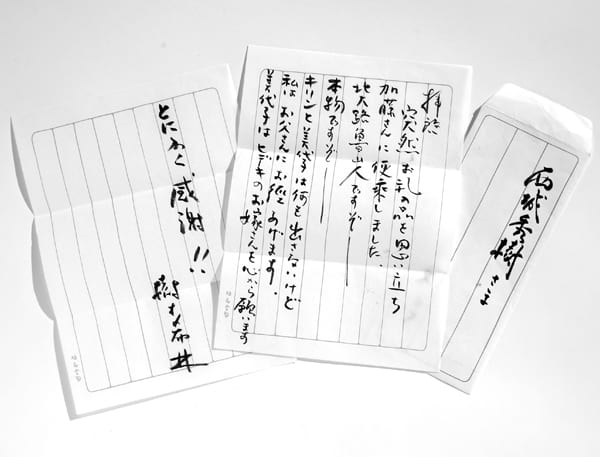 西城秀樹さま
拝啓
突然お礼の品を思い立ち
加藤さんに便乗しました。
北大路魯山人ですぞ──
本物ですぞ──
キリンと美代子は何も出さないけど
私は お父さんにお經あげます。
美代子はヒデキのお嫁さんを心から願います
とにかく感謝!!
樹木希林